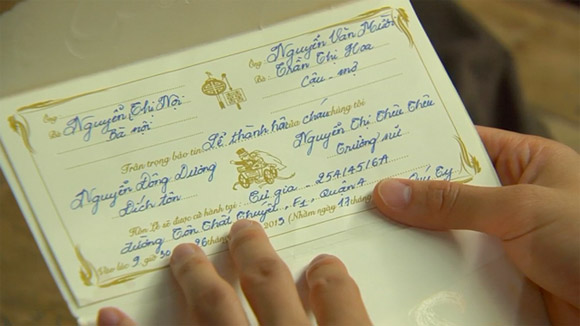 Ông : Nguyễn Văn Mười
Bà : Trần Thị Hoa
Cậu - mợ
Ông :
Bà : Nguyễn Thị Nội
Bà nội
Trân trọng báo tin Lễ thành hôn của cháu chúng tôi
Nguyễn Đông Dương
Đích tôn
Nguyễn Thị Thêu Thêu
Trưởng nữ
Hôn Lễ sẽ được cử hành tại : Tư gia 25A/45/6A
đường Tôn Thất Thuyết, F1, Quận 4
Vào lúc 9 giờ 30 26 tháng 2013 (Nhằm ngày 17 tháng Quý Tỵ